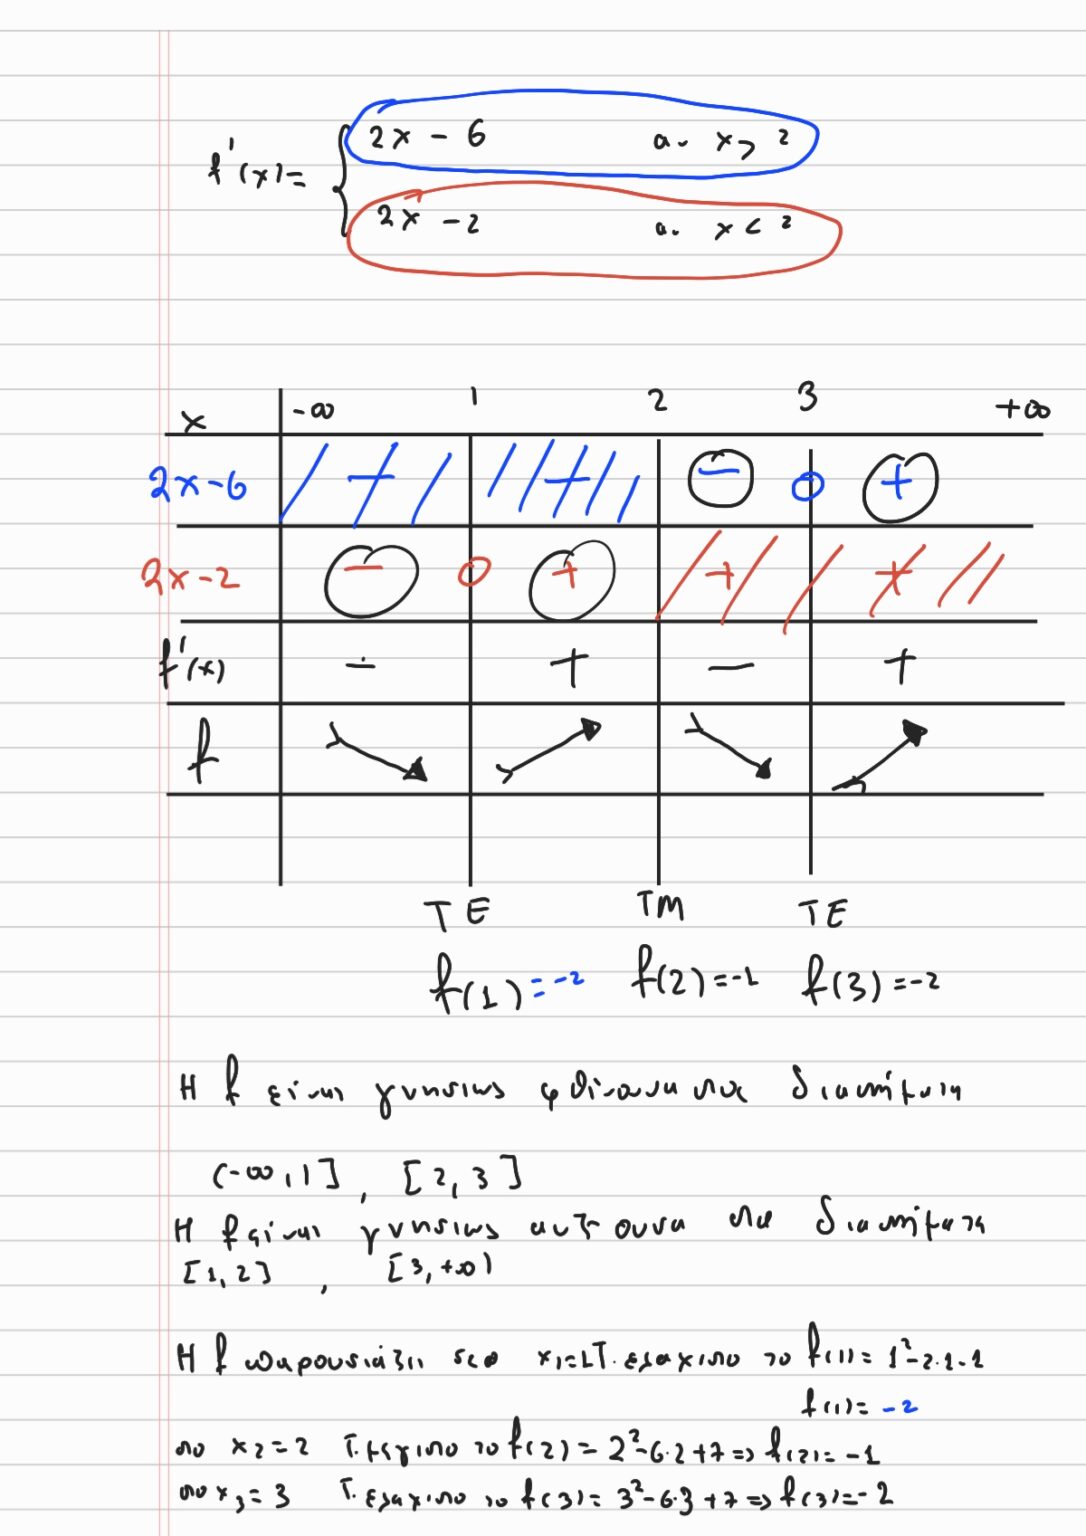 f'(x) = { 2x - 6 αν x > 2
2x - 2 αν x < 2
x -∞ 1 2 3 +∞
2x-6 - - - 0 +
2x-2 - 0 + + +
f'(x) - + - +
f
TE TM TE
f(1) = -2 f(2) = -1 f(3) = -2
Η f είναι γνησίως φθίνουσα στα διαστήματα
(-∞, 1] , [2, 3]
Η f είναι γνησίως αύξουσα στα διαστήματα
[1, 2] , [3, +∞)
Η f παρουσιάζει στο x₁=1 Τ. ελάχιστο το f(1) = 1²-2·1-1
f(1) = -2
στο x₂ = 2 Τ. μέγιστο το f(2) = 2²-6·2+7 => f(2) = -1
στο x₃ = 3 Τ. ελάχιστο το f(3) = 3²-6·3+7 => f(3) = -2